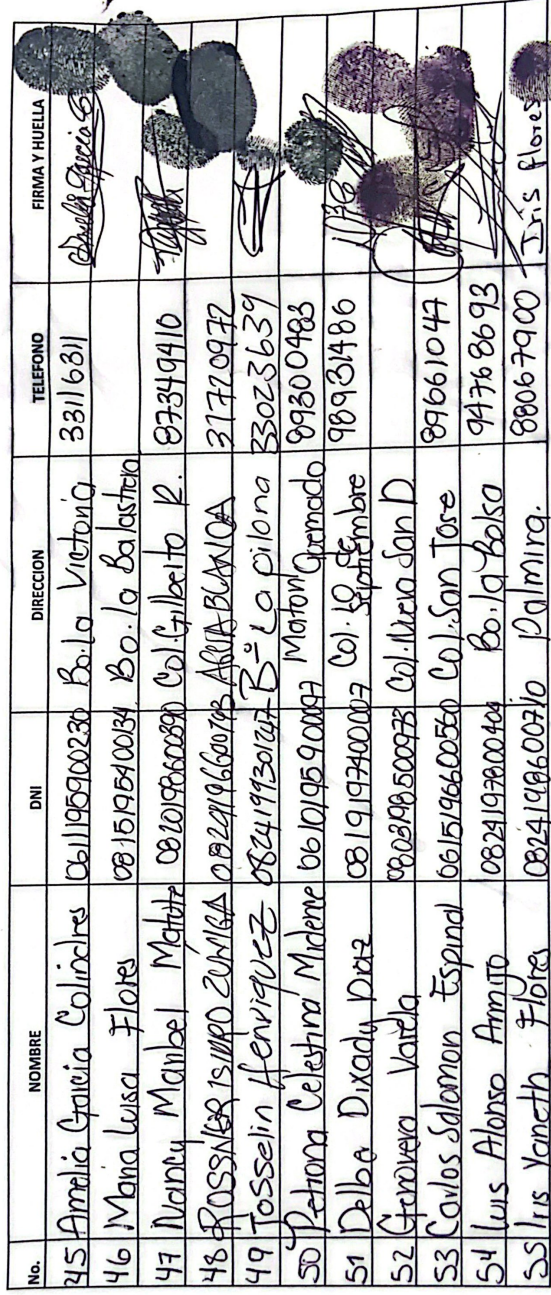 No. NOMBRE DNI DIRECCION TELEFONO FIRMA Y HUELLA
45 Amelia Garcia Colindres 0611195900230 Bo. La Victoria 33116311 Amelia Garcia
46 Maria Luisa Flores 0815195400134 Bo. la Balastrera
47 Nancy Maribel Matute 0820198600390 Col. Gilberto R. 87349410
48 ROSSNER ISIDRO ZÚNIGA AGUA BLANCA 31720972
49 Josselin Henriquez B= La pilona 33023639
50 Petrona Celestina Midence 061019590097 Maton Quemado 89300483
51 Delba Dixady Diaz 0819197400007 Col. 10 de Septiembre 98931486
52 Genoveva Varela Col. Nueva San D
53 Carlos Salomon Espinal 0615196600560 Col. San Jose 89661047
54 Luis Alonso Armijo 0824197800404 Bo. la Bolsa 94768693
55 Iris Yaneth Flores 0824198600710 Palmira. 88067900 Iris flores